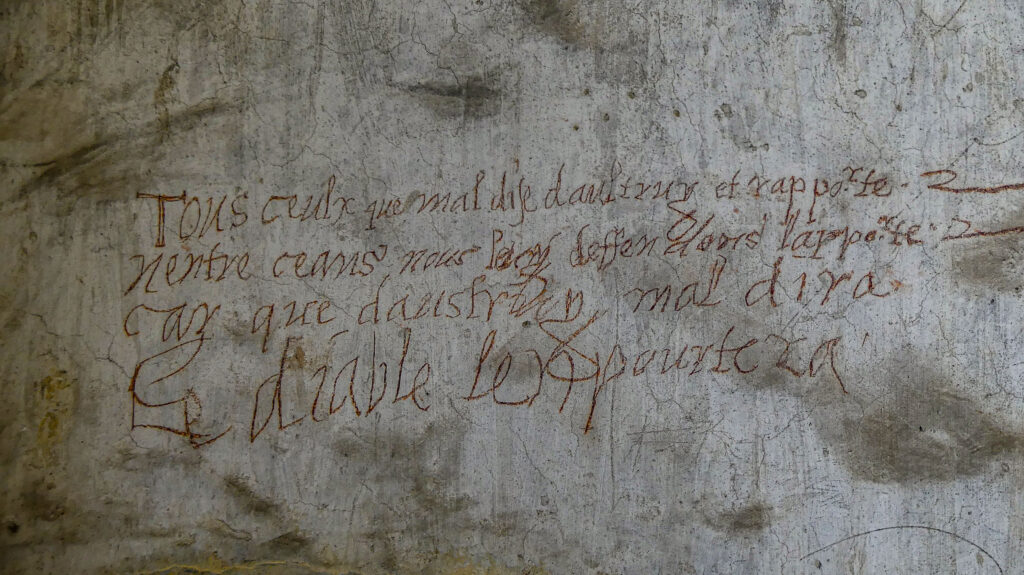 Tous ceulx que mal dise daultruy et rapporte
nentre ceans, nous luy deffendons lapporte
car que daustruy mal dira
Le diable lexpourtera